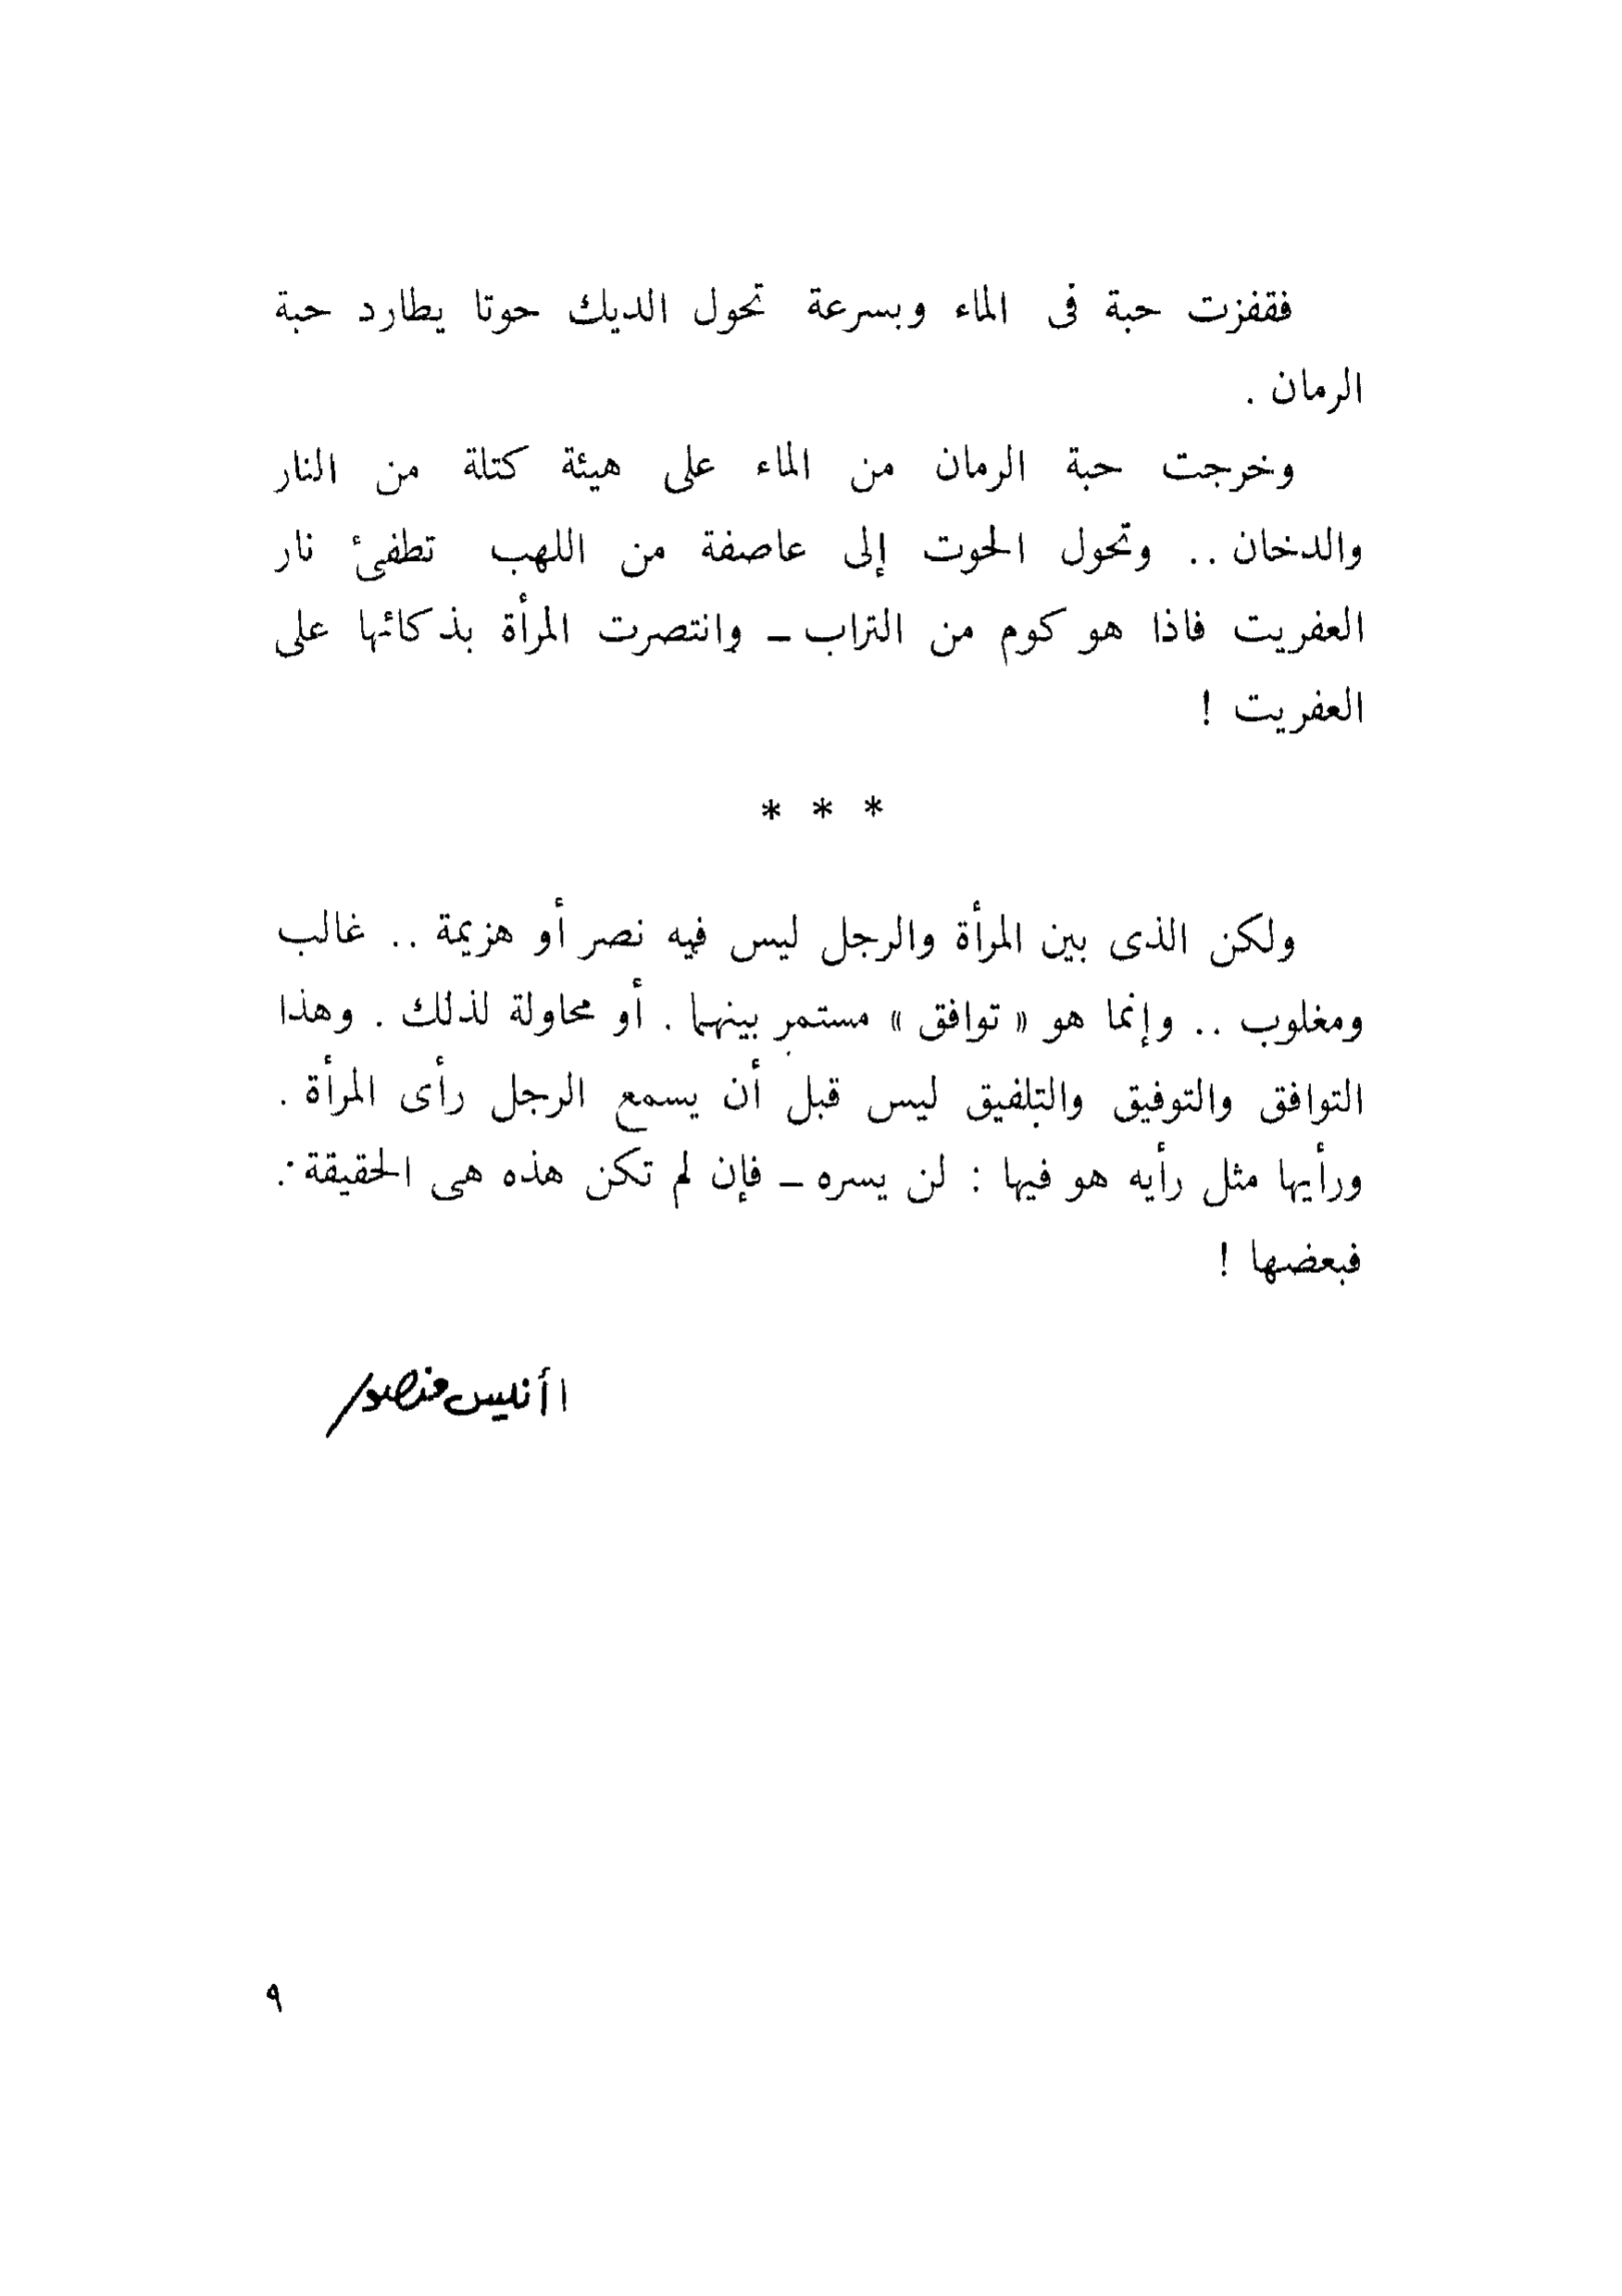 فقفزت حبة فى الماء وبسرعة تحول الديك حوتا يطارد حبة
الرمان .
وخرجت حبة الرمان من الماء على هيئة كتلة من النار
والدخان .. وتحول الحوت إلى عاصفة من اللهب تطفئ نار
العفريت فاذا هو كوم من التراب ــ وانتصرت المرأة بذكائها على
العفريت !
* * *
ولكن الذى بين المرأة والرجل ليس فيه نصر أو هزيمة .. غالب
ومغلوب .. وإنما هو « توافق » مستمر بينهما . أو محاولة لذلك . وهذا
التوافق والتوفيق والتلفيق ليس قبل أن يسمع الرجل رأى المرأة .
ورأيها مثل رأيه هو فيها : لن يسره ــ فإن لم تكن هذه هى الحقيقة .
فبعضها !
أنيس منصور
٩